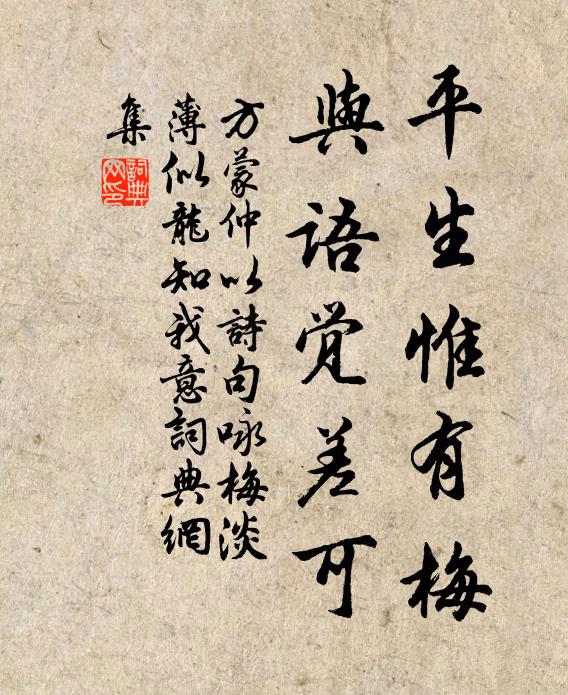 平生惟有梅
與語覺差可
方蒙仲以詩句咏梅淡
薄似龍知我意詞典網
集
詞典
网印